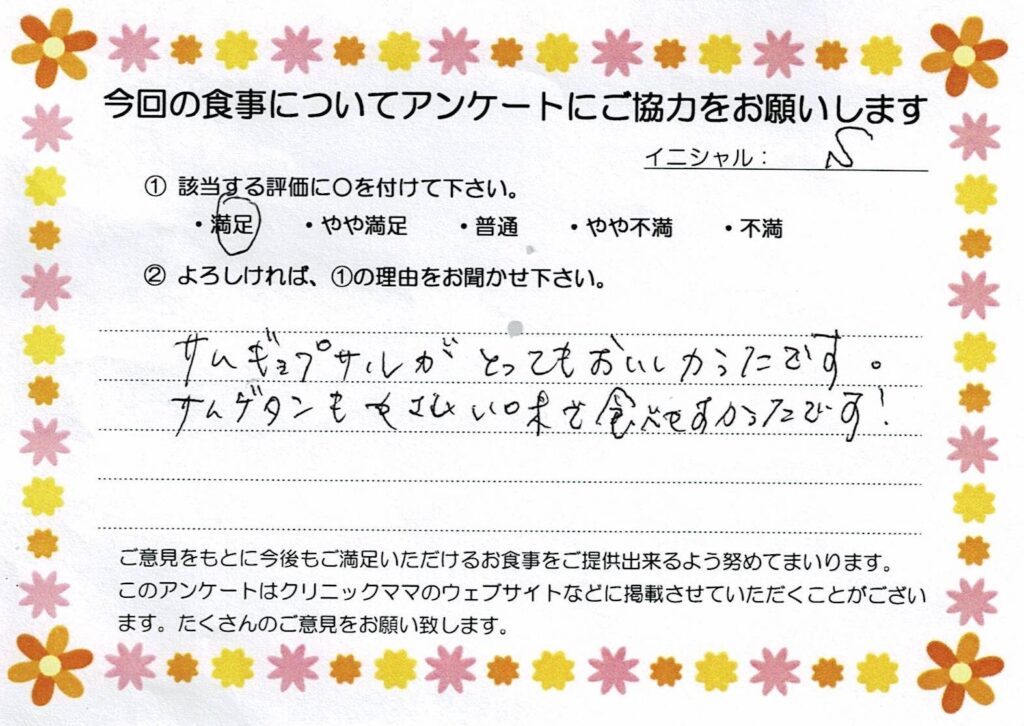 今回の食事についてアンケートにご協力をお願いします
イニシャル： S
① 該当する評価に〇を付けて下さい。
・満足 ・やや満足 ・普通 ・やや不満 ・不満
② よろしければ、①の理由をお聞かせ下さい。
サムギョプサルがとってもおいしかったです。
サムゲタンもやさしい味で食べやすかったです!
ご意見をもとに今後もご満足いただけるお食事をご提供出来るよう努めてまいります。
このアンケートはクリニックママのウェブサイトなどに掲載させていただくことがござい
ます。たくさんのご意見をお願い致します。